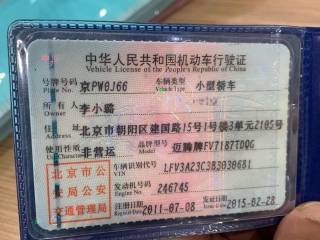 中华人民共和国机动车行驶证
Vehicle License of the People's Republic of China
号牌号码 京PW0J66 车辆类型 小型轿车
Plate No. Vehicle Type
所有人 李小璐
Owner
住址 北京市朝阳区建国路15号1号楼3单元2105号
Address
使用性质 非营运 品牌型号 迈腾牌FV7187TDQG
Use Character
车辆识别代号 LFV3A23C3B3030681
VIN
北京市公安局公安交通管理局
发动机号码 246745
Engine No.
注册日期 2011-07-08 发证日期 2015-02-28
Register Date Issue Date